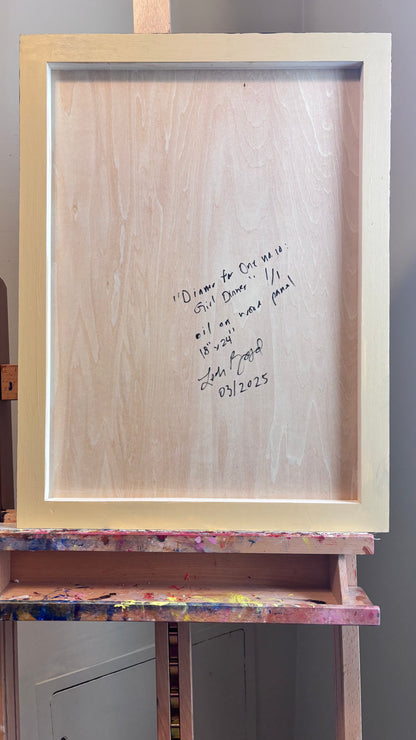 "Dinner for One
Girl Dinner" 1/1
oil on wood panel
18"x24"
03/2025